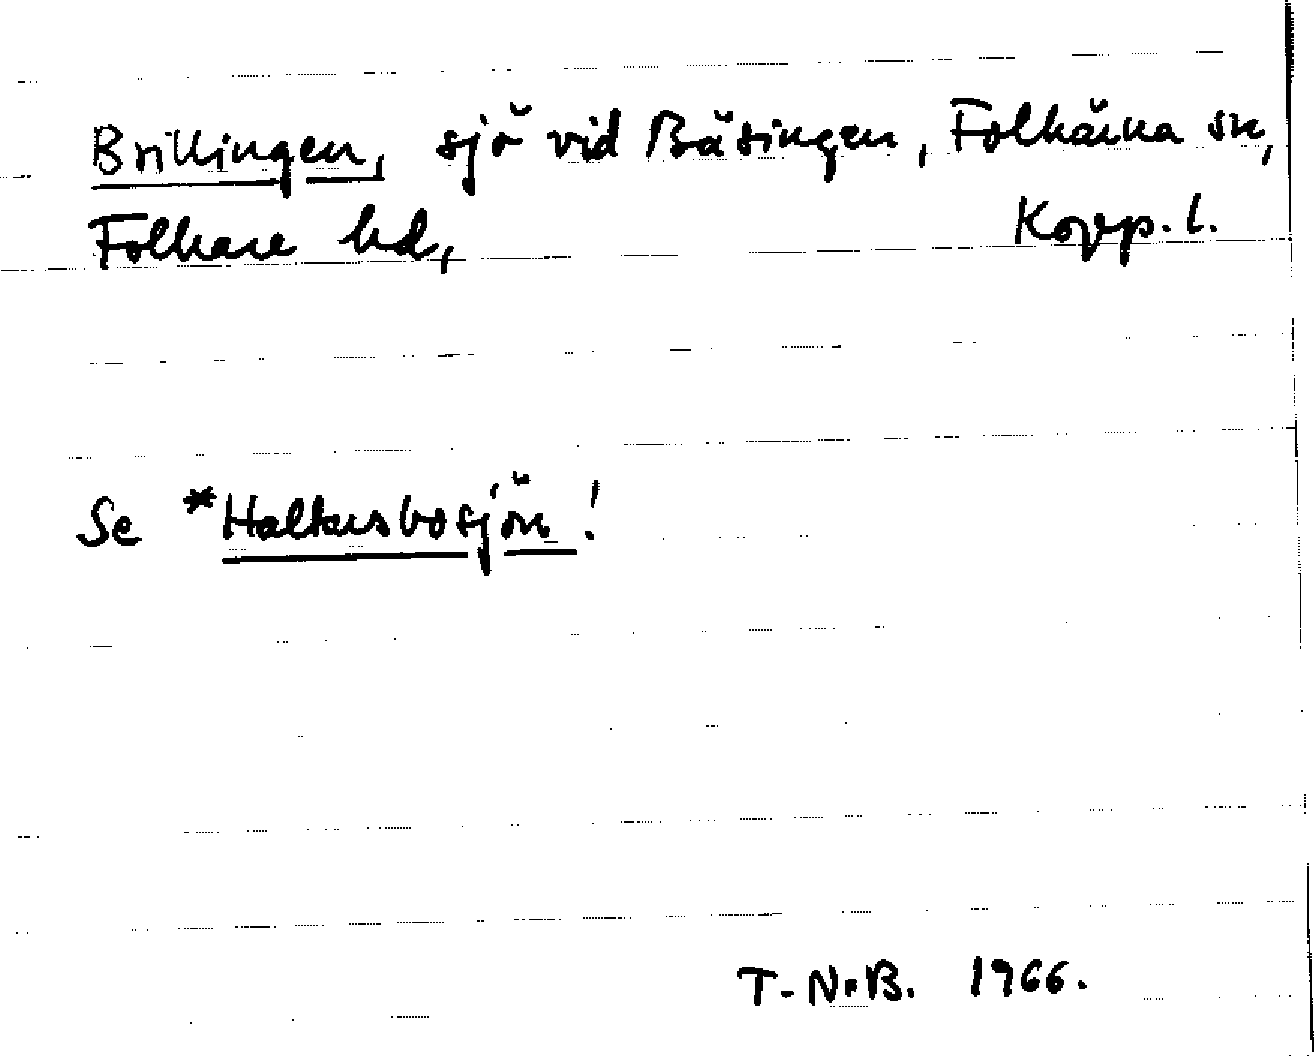 Brillingen, sjö vid Bäsingen, Folkärna sn,
Folkare hd, Kopp. l.
Se *Halkusbosjön!
T-N.B. 1966.